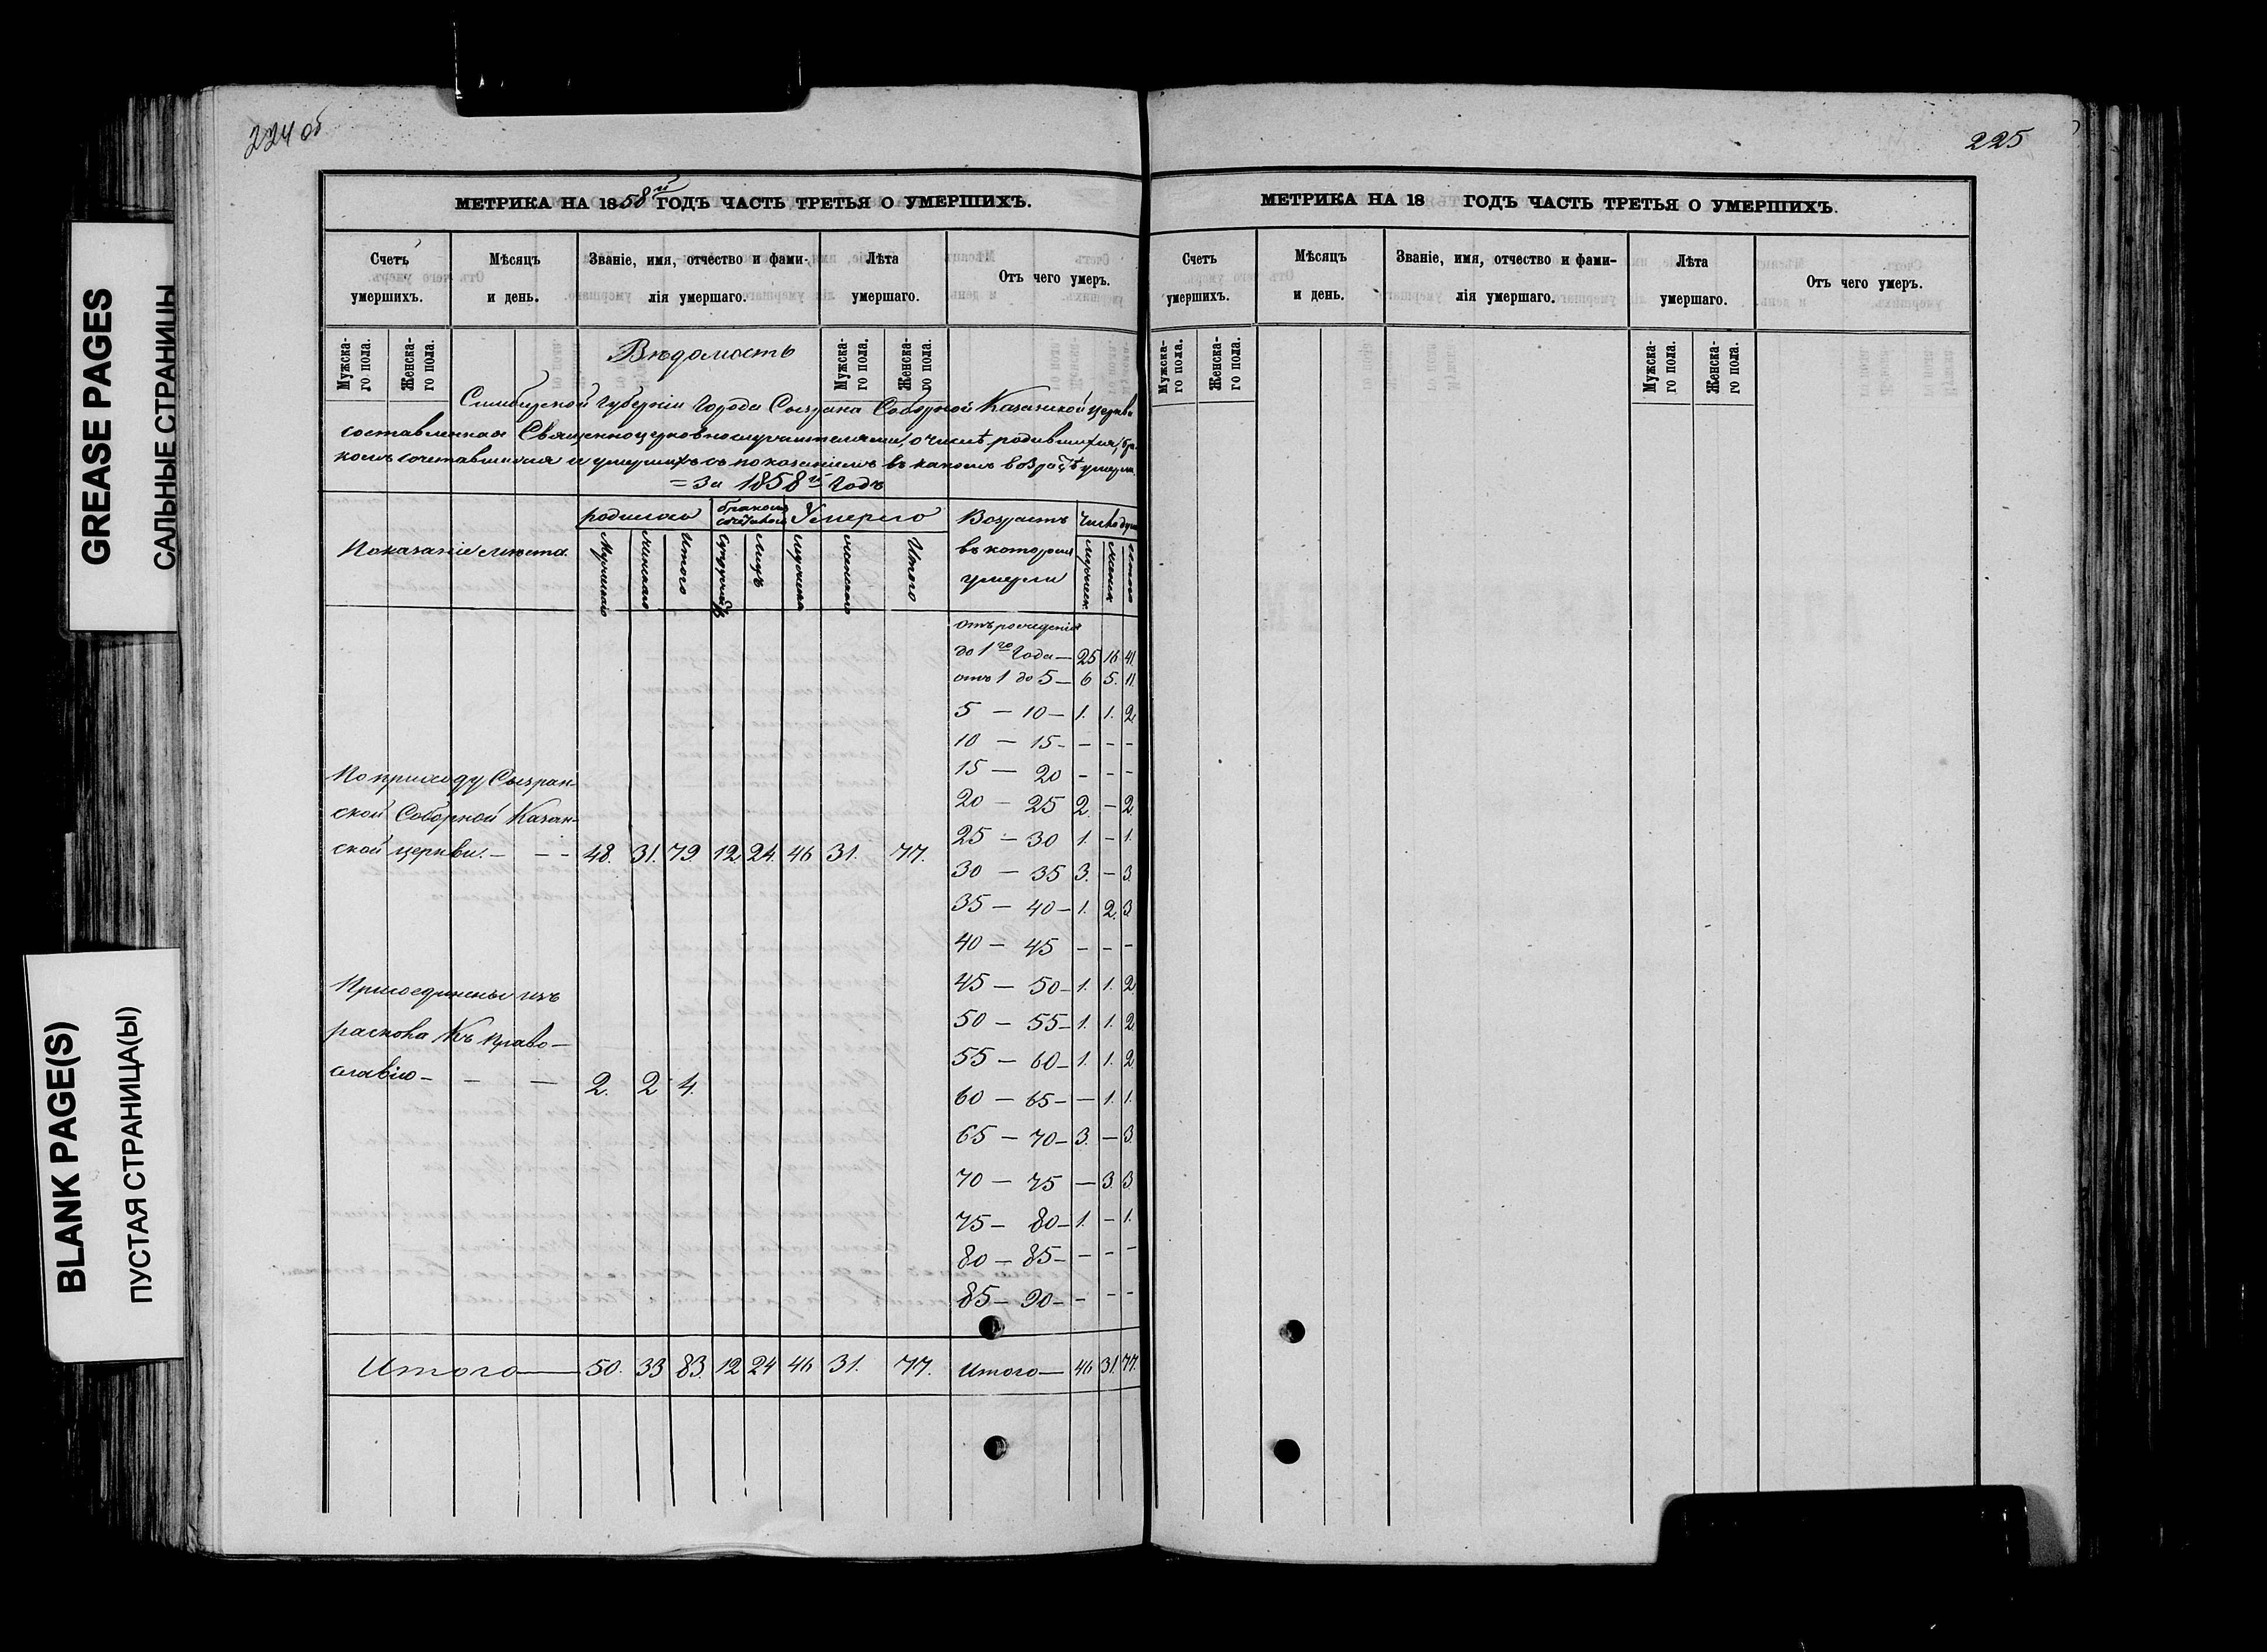 224 об
225
GREASE PAGES
САЛЬНЫЕ СТРАНИЦЫ
BLANK PAGE(S)
ПУСТАЯ СТРАНИЦА(Ы)
МЕТРИКА НА 1858й ГОДЪ ЧАСТЬ ТРЕТЬЯ О УМЕРШИХЪ.
Счетъ умершихъ.
Мѣсяцъ и день.
Званіе, имя, отчество и фами-
лія умершаго.
Лѣта умершаго.
Отъ чего умеръ.
Мужска-
го пола.
Женска-
го пола.
Вѣдомость
Мужска-
го пола.
Женска-
го пола.
Симбирской Губерніи Города Сызрана Соборной Казанской церкви
составленная Священноцерковнослужителями, о числѣ родившихся, бра-
комъ сочетавшихся и умершихъ съ показаніемъ въ какомъ возрастѣ умерли
= За 1858й Годъ
Показаніе мѣста
родилось
бракомъ сочеталось
Умерло
Возрастъ въ которомъ умерли
Число душъ
Мужескаго
женскаго
Итого
Супружествъ
Лицъ
мужеска
женскаго
Итого
мужеск.
женск
итого
отъ рожденія
до 1го Года — 25 16 41.
отъ 1 до 5 — 6 5. 11.
5 — 10 — 1. 1. 2.
10 — 15 - - - -
15 — 20 - - -
20 — 25 2. - 2.
25 — 30 1. - 1.
30 — 35 3. — 3.
35 — 40 — 1. 2. 3.
40 — 45 - - -
45 — 50 — 1. 1. 2.
50 — 55 — 1. 1. 2.
55 — 60 — 1. 1. 2.
60 — 65 - — 1. 1.
65 — 70 — 3. — 3.
70 — 75 — 3. 3.
75 — 80 — 1. - 1.
80 — 85 - - - -
85 — 90 - - - -
По приходу Сызран-
ской Соборной Казан-
ской церкви. — - - 48. 31. 79. 12. 24. 46 31. 77.
Присоединены изъ
раскола Къ право-
славію - - — 2. 2 4.
Итого — 50. 33 83. 12 24 46 31. 77.
Итого — 46 31. 77.
МЕТРИКА НА 18 ГОДЪ ЧАСТЬ ТРЕТЬЯ О УМЕРШИХЪ.
Счетъ умершихъ.
Мѣсяцъ и день.
Званіе, имя, отчество и фами-
лія умершаго.
Лѣта умершаго.
Отъ чего умеръ.
Мужска-
го пола.
Женска-
го пола.
Мужска-
го пола.
Женска-
го пола.